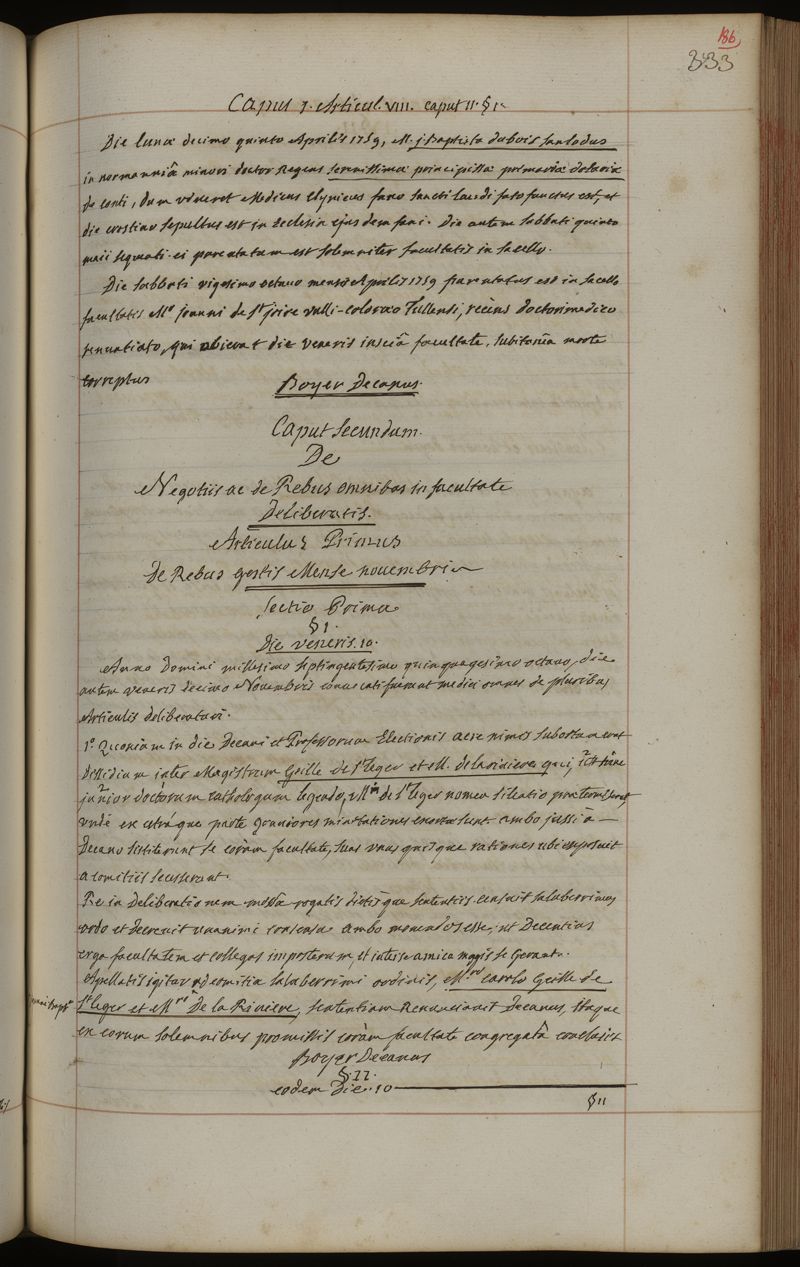 186
333
Caput 7. Articul. VIII. caput II. § 1.
Die lunæ decimo quinto Aprilis 1759, M. j Baptista dubois sanlodus
in normanniâ minori doctor Regens serenissimæ principissæ primariæ dotariæ
de conti, dum vâneret Medicus Clynicus fano sancti laudi fato functus est, et
die crastino sepultus est in Ecclesia ejusdem fani. Die autem sabbati quinto
maii sequati ei parentatum est solemniter facultatis in sacello.
Die sabbati vigesimo octavo mensis Aprilis 1759 parentatus est in sacello
facultatis Mo joanni de St joire valli-colorœo Tullensi, recèns doctori medico
renuntiato, qui obierat die veneris insciâ facultate, subitaneâ morte
correptus
Boyer Decanus.
Caput Secundum.
De
Negotiis ac de Rebus omnibus in facultate
Deliberatis.
Articulus Primus
de Rebus gestis Mense novembri
Sectio Prima
§ 1.
Die veneris. 10.
Anno Domini millesimo septingentesimo quinquagesimo octavo, die
autem veneris decimo Novembris convocati fuerunt medici omnes de pluribus
Articulis deliberaturi.
1o. Quoniam in die Decani et Professorum Electionis acre nimis subortum erat
dissidium inter Magistrum Geille de St leger et M. delariviere qui,
junior doctorum cathalogum legendo, Mri de St leger nomen silentio prætermiserat
undè ex utrâque parte graviores minitationes exortæ sunt ambo jussi a
Decano stiterunt se coràm facultate, suas unusquisque rationes ubi exposuit
a comitiis secesserunt.
Re in deliberationem missâ rogatis dictisque sententiis censuit saluberrimus
ordo et decrevit unanimi consensu ambo monendos esse, ut Decentius
erga facultatem et collegas imposterum, et inter se amica magis se Gerant.
Apellatis igitur ad comitia saluberrimi ordinis, M.ro carolo Geille de
St leger et M.ro De la Riviere, sententiam Renunciavit Decanus, itaque
ex eorum solemnibus promissis coràm facultate congregatâ conclusit
Boyer Decanus
§. II.
eodem Die. 10
§ II